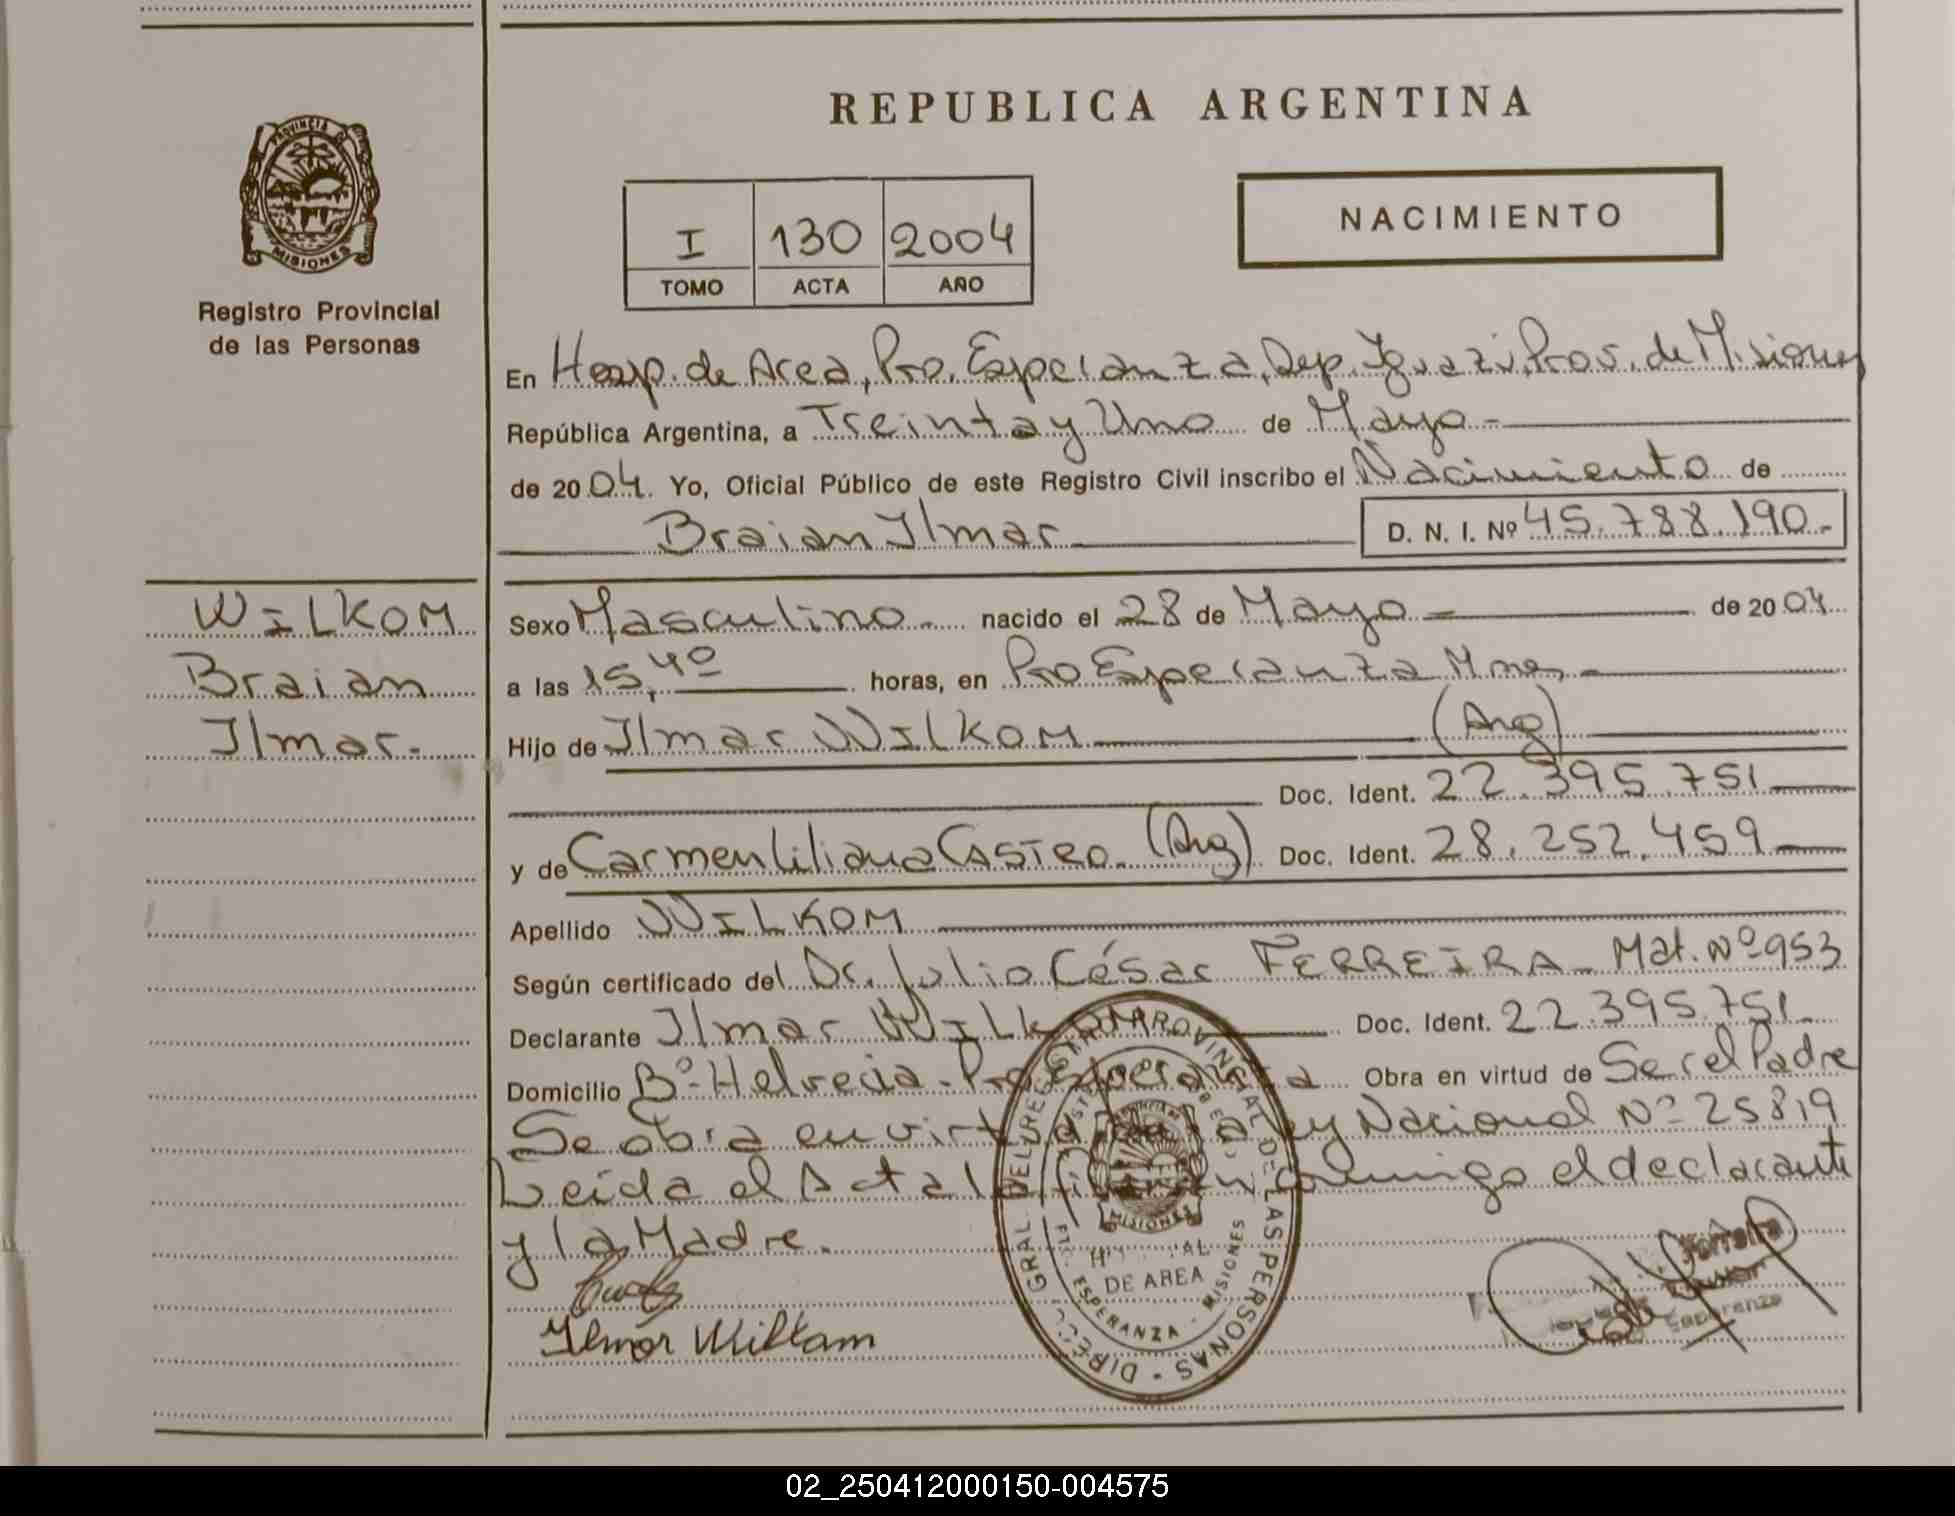 REPUBLICA ARGENTINA
PROVINCIA DE
MISIONES
Registro Provincial
de las Personas
I 130 2004
TOMO ACTA AÑO
NACIMIENTO
En Hosp. de Area, Pto. Esperanza, Dep. Iguazú, Prov. de Misiones
República Argentina, a Treinta y Uno de Mayo
de 2004. Yo, Oficial Público de este Registro Civil inscribo el Nacimiento de
Braian Ilmar D. N. I. Nº 45.788.190.-
WILKOM
Braian
Ilmar.-
Sexo Masculino nacido el 28 de Mayo de 2004
a las 15,40 horas, en Pto Esperanza Mnes
Hijo de Ilmar WILKOM (Arg)
Doc. Ident. 22.395.751
y de Carmen Liliana CASTRO (Arg) Doc. Ident. 28.252.459
Apellido WILKOM
Según certificado del Dr. Julio César FERREIRA Mat. Nº 953
Declarante Ilmar WILKOM Doc. Ident. 22.395.751
Domicilio Bº Helvecia - Pto Esperanza Obra en virtud de Ser el Padre
Se obra en virtud de la Ley Nacional Nº 25819
Leida el Acta la firman conmigo el declarante
y la Madre.
Ilmar Wilkom
DIRECC. GRAL. DEL REGISTRO PROVINCIAL DE LAS PERSONAS
MISIONES
DE AREA
ESPERANZA - MISIONES
Ferreira
Esperanza
02_250412000150-004575